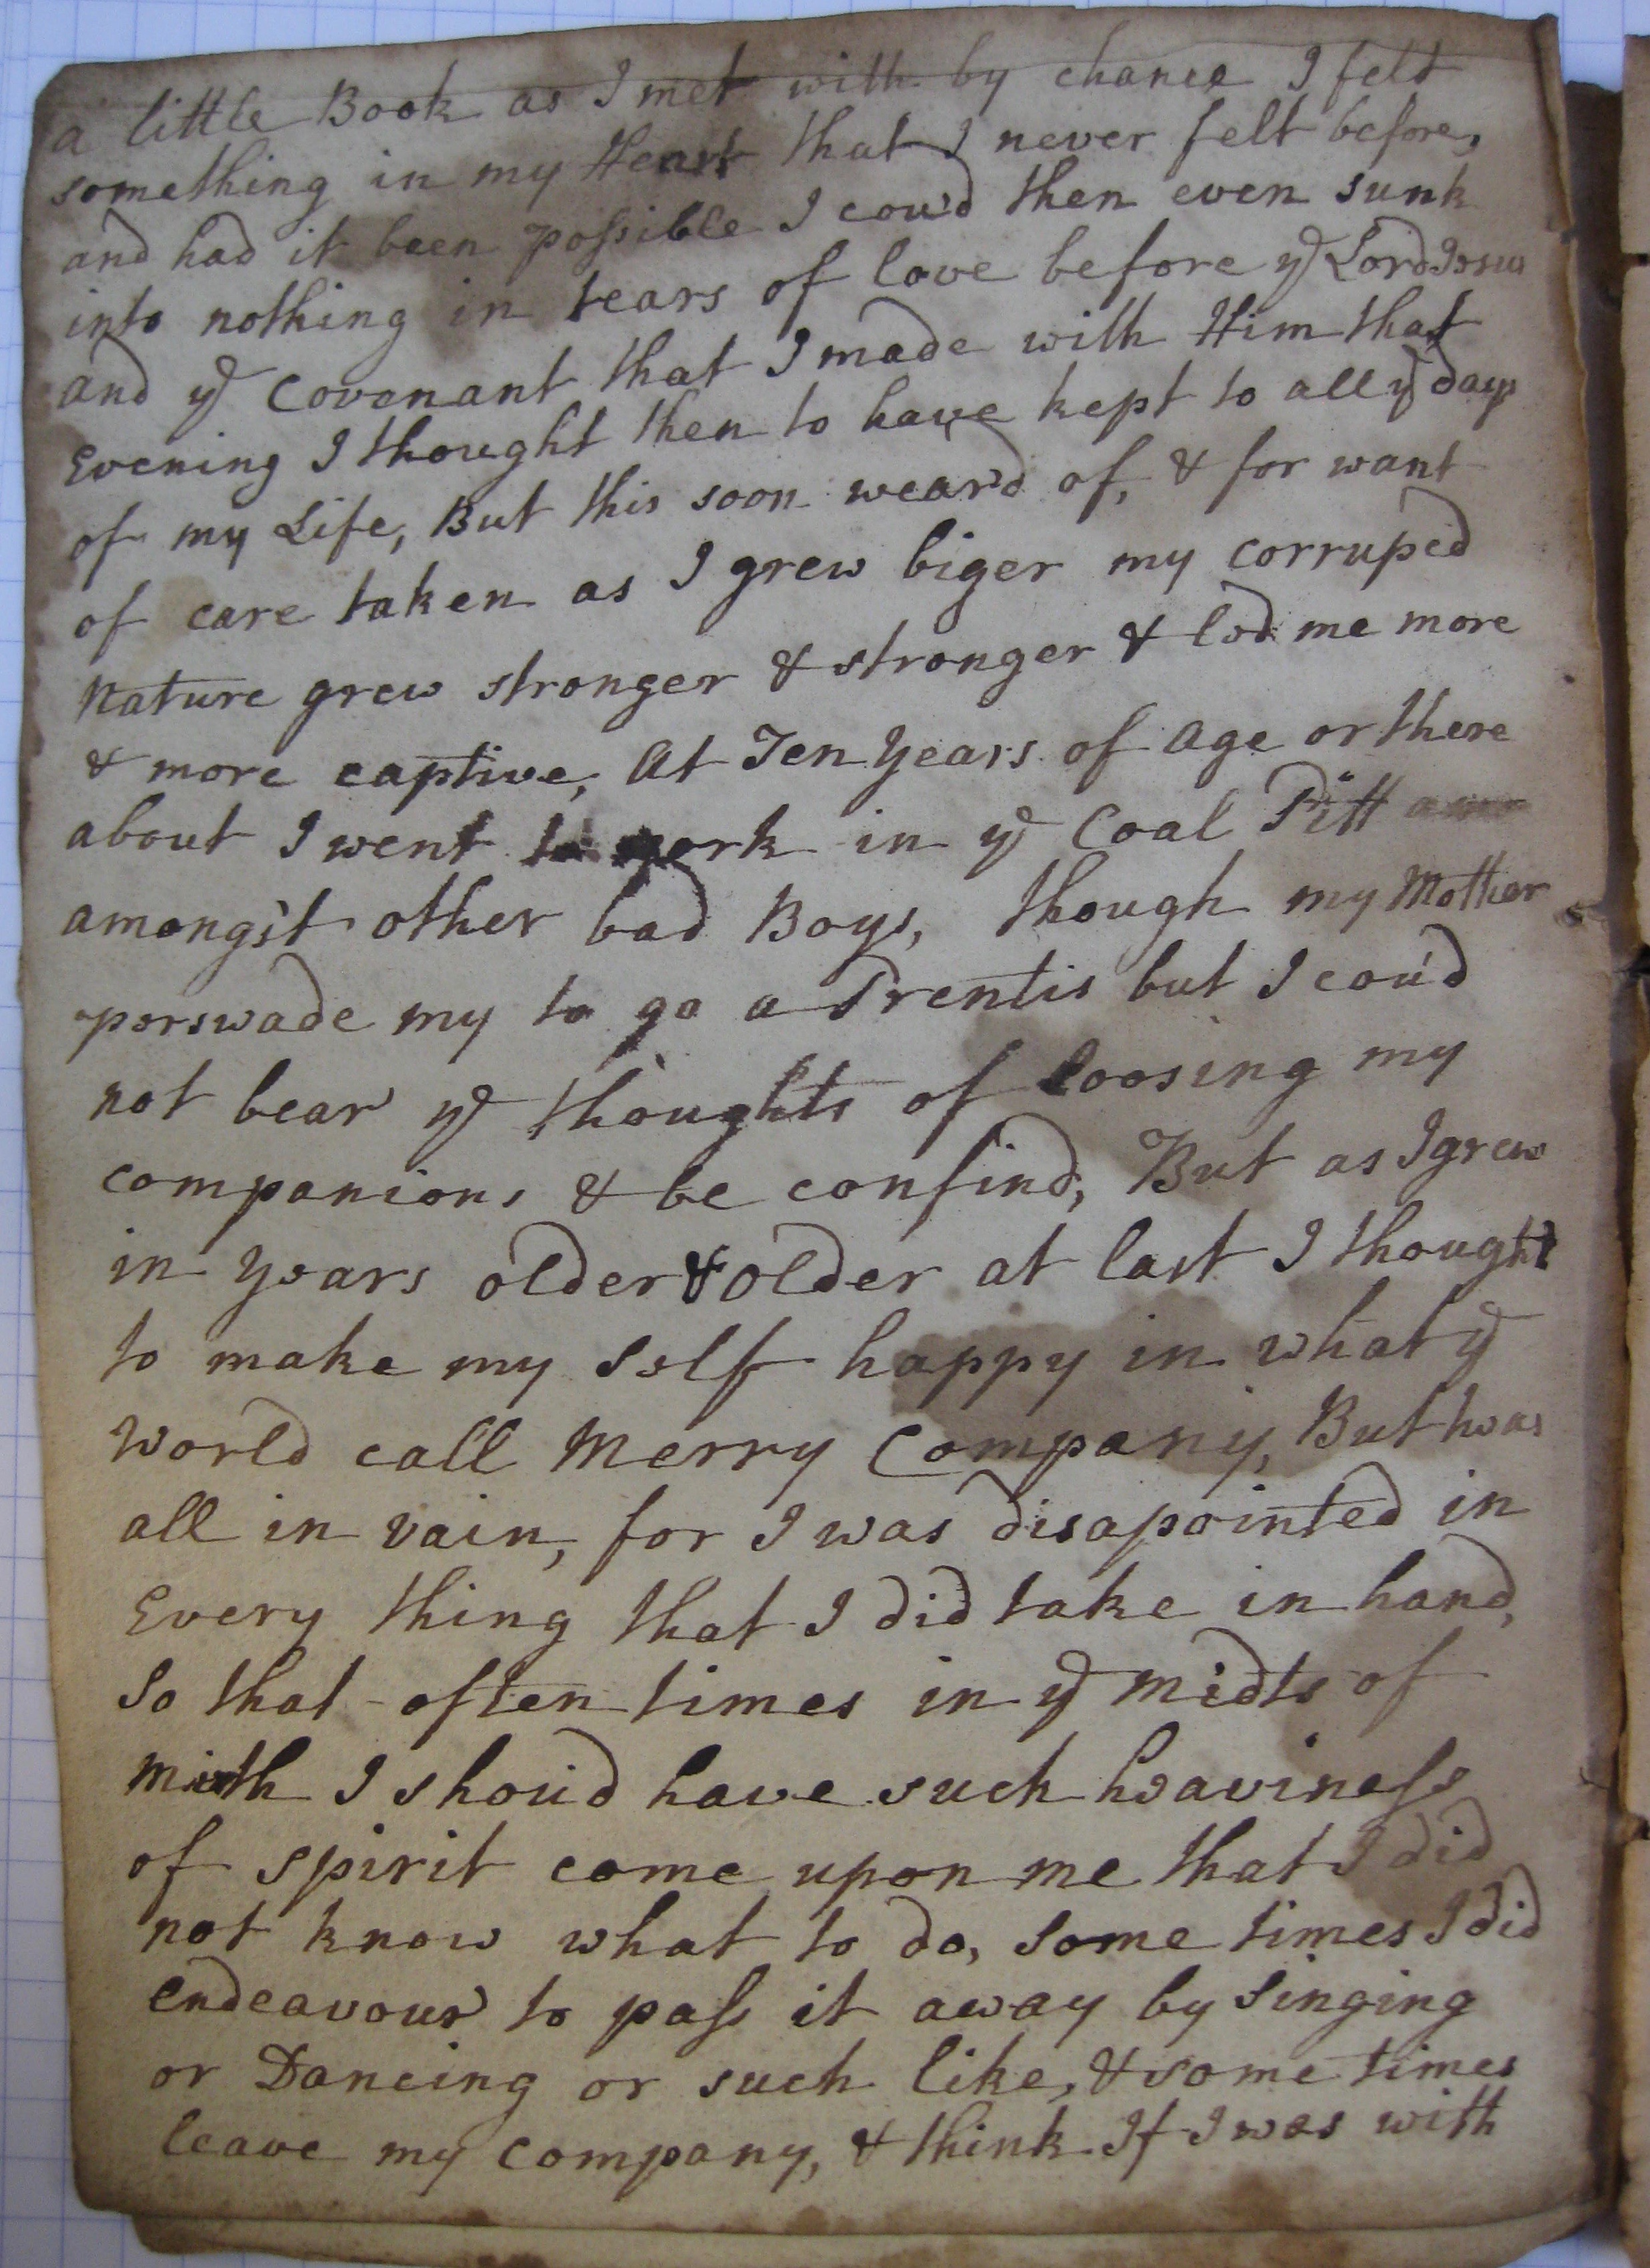 a little Book as I met with by chance I felt
something in my Heart that I never felt before,
and had it been possible I cou'd then even sunk
into nothing in tears of love before ye Lord Jesus
and ye Covenant that I made with Him that
Evening I thought then to have kept to all ye days
of my Life, But this soon weard of, & for want
of care taken as I grew biger my corruped
Nature grew stronger & stronger & led me more
& more captive, At Ten years of Age or there
about I went to work in ye Coal Pitt
amongst other bad Boys, though my Mother
perswade my to go a Prentis but I cou'd
not bear ye thoughts of loosing my
companions & be confind, But as I grew
in years older & older at last I thought
to make my Self happy in what ye
World call Merry Company, But twas
all in vain, for I was disapointed in
Every thing that I did take in hand,
So that often times in ye midts of
mirth I shou'd have such heaviness
of spirit come upon me that I did
not know what to do, some times I did
endeavour to pass it away by singing
or Dancing or such like, & some times
leave my company, & think If I was with